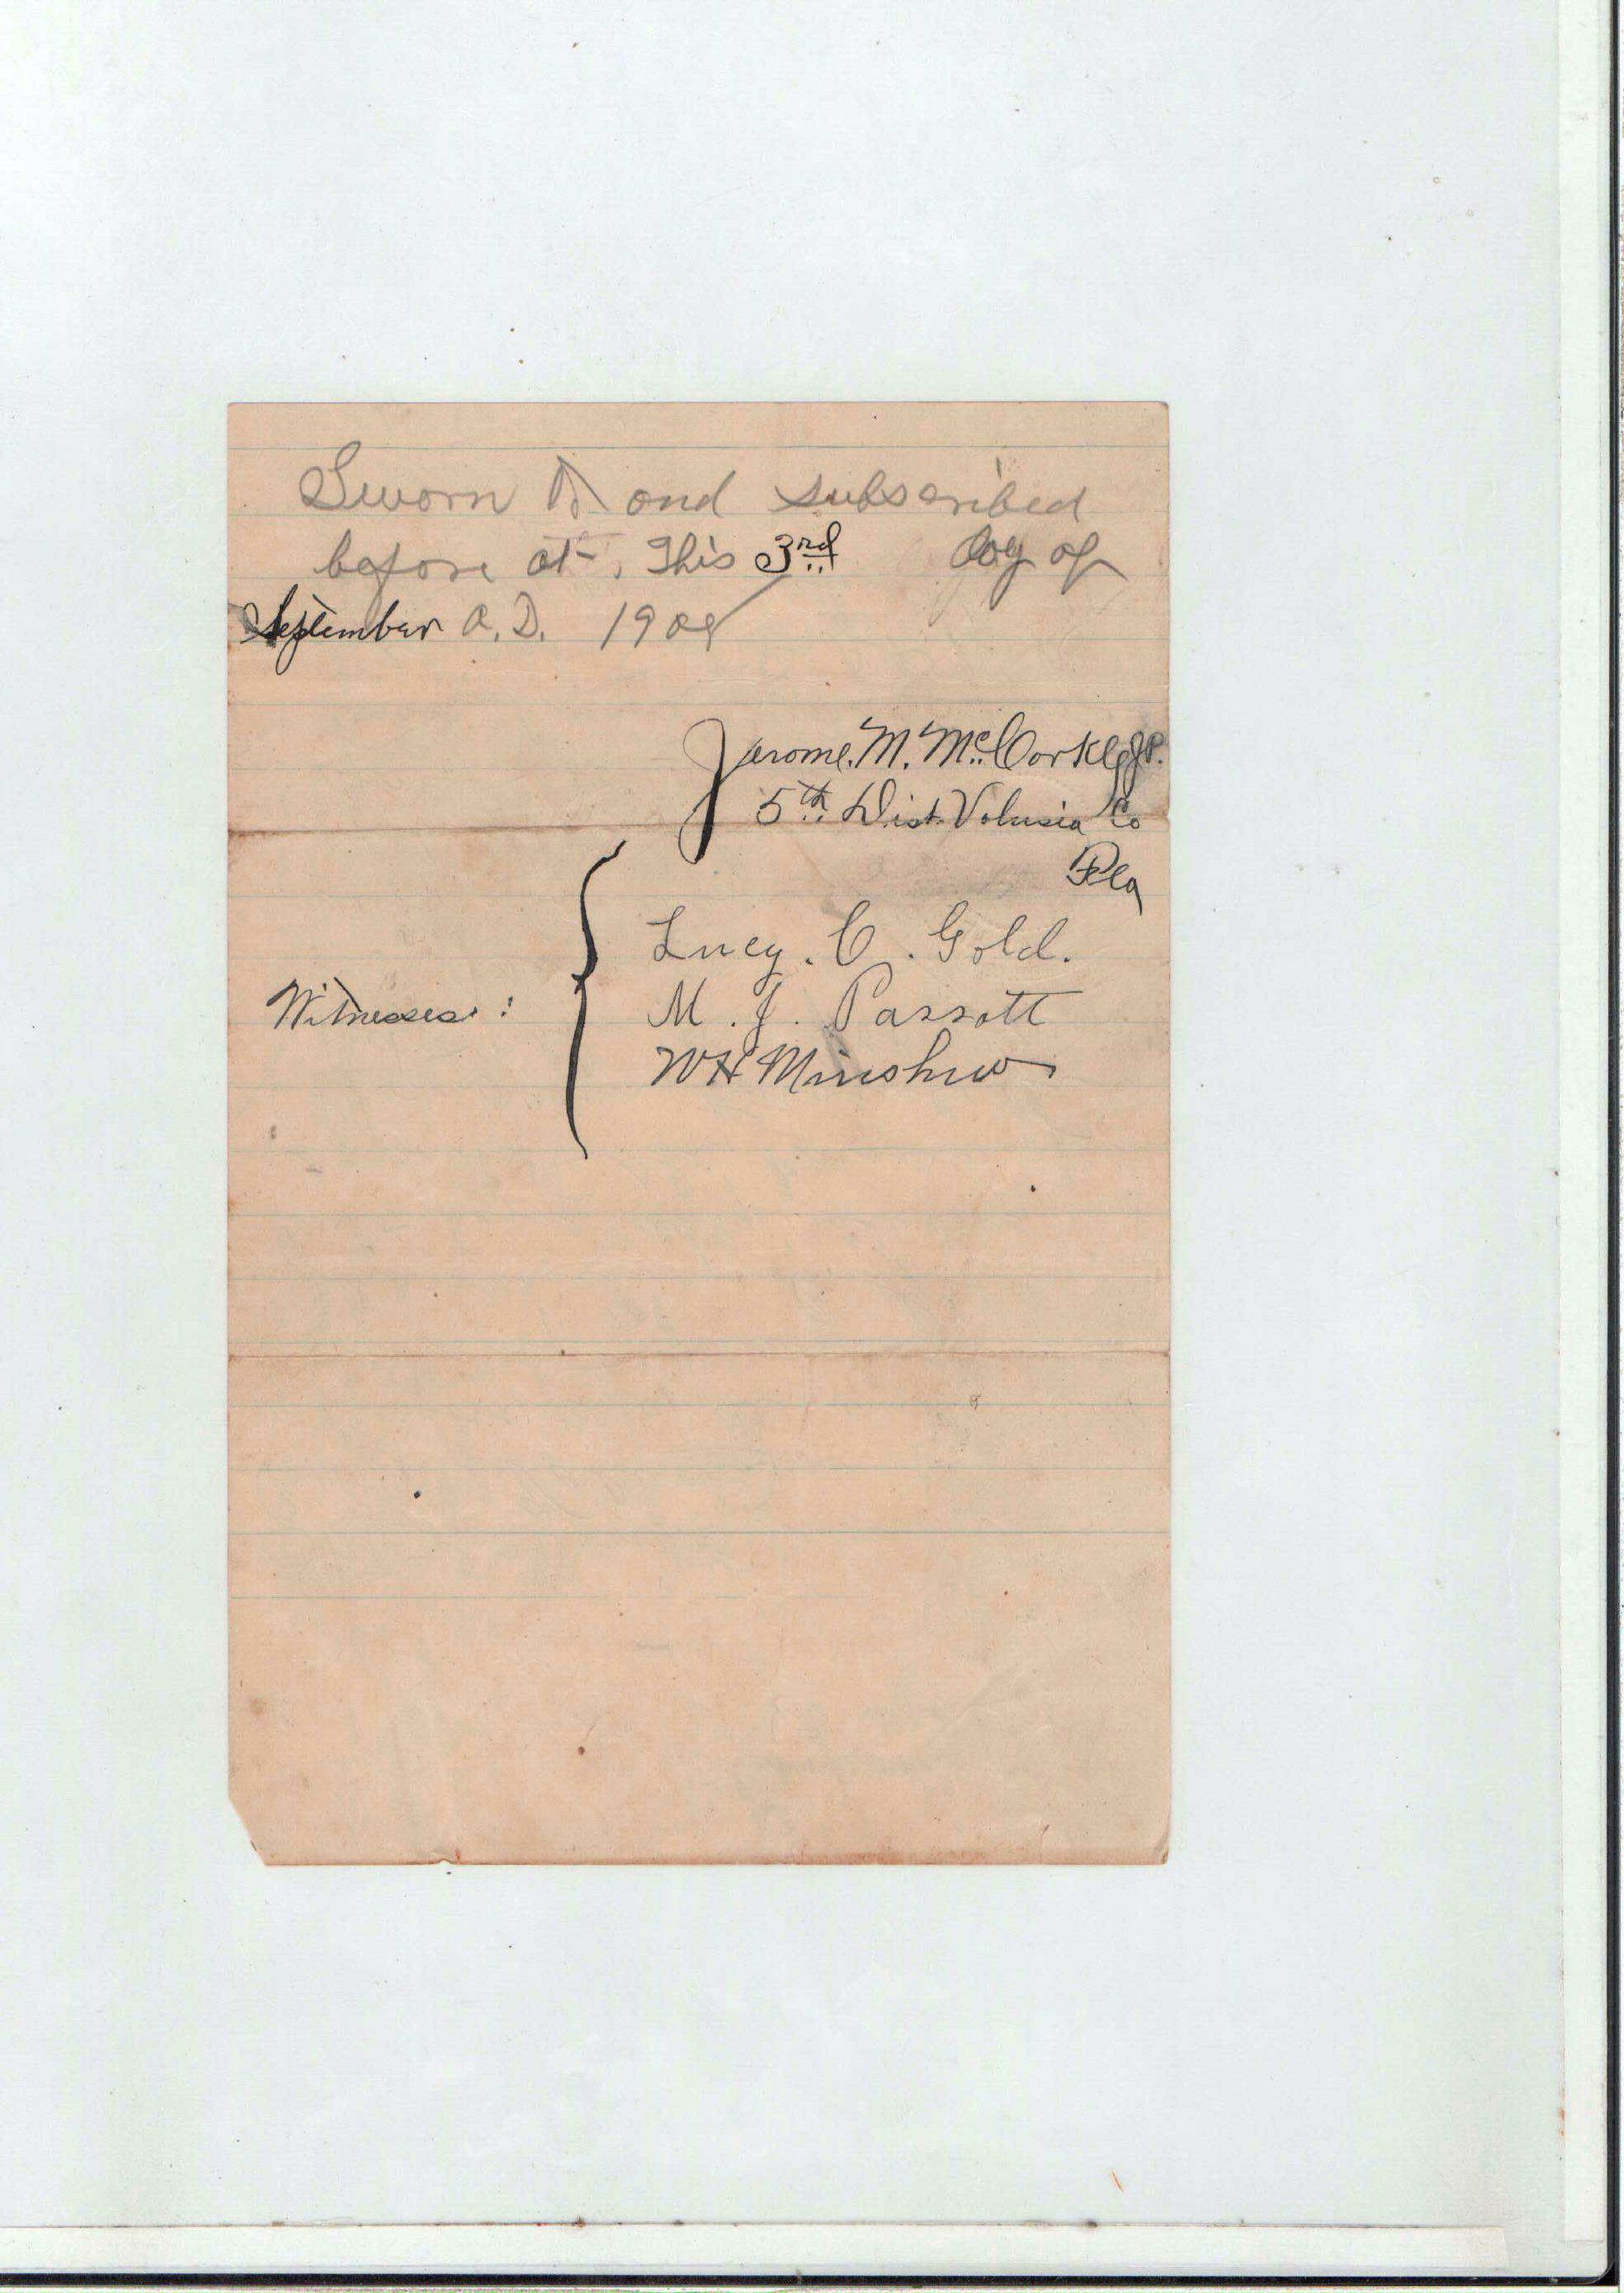 Sworn to and subscribed
before at, This 3rd day of
September A.D. 1908
Jerome. M. McCorkle J.P.
5th Dist. Volusia Co
Fla
Lucy. C. Gold.
Witnesses: M. J. Parrott
W H Minshew